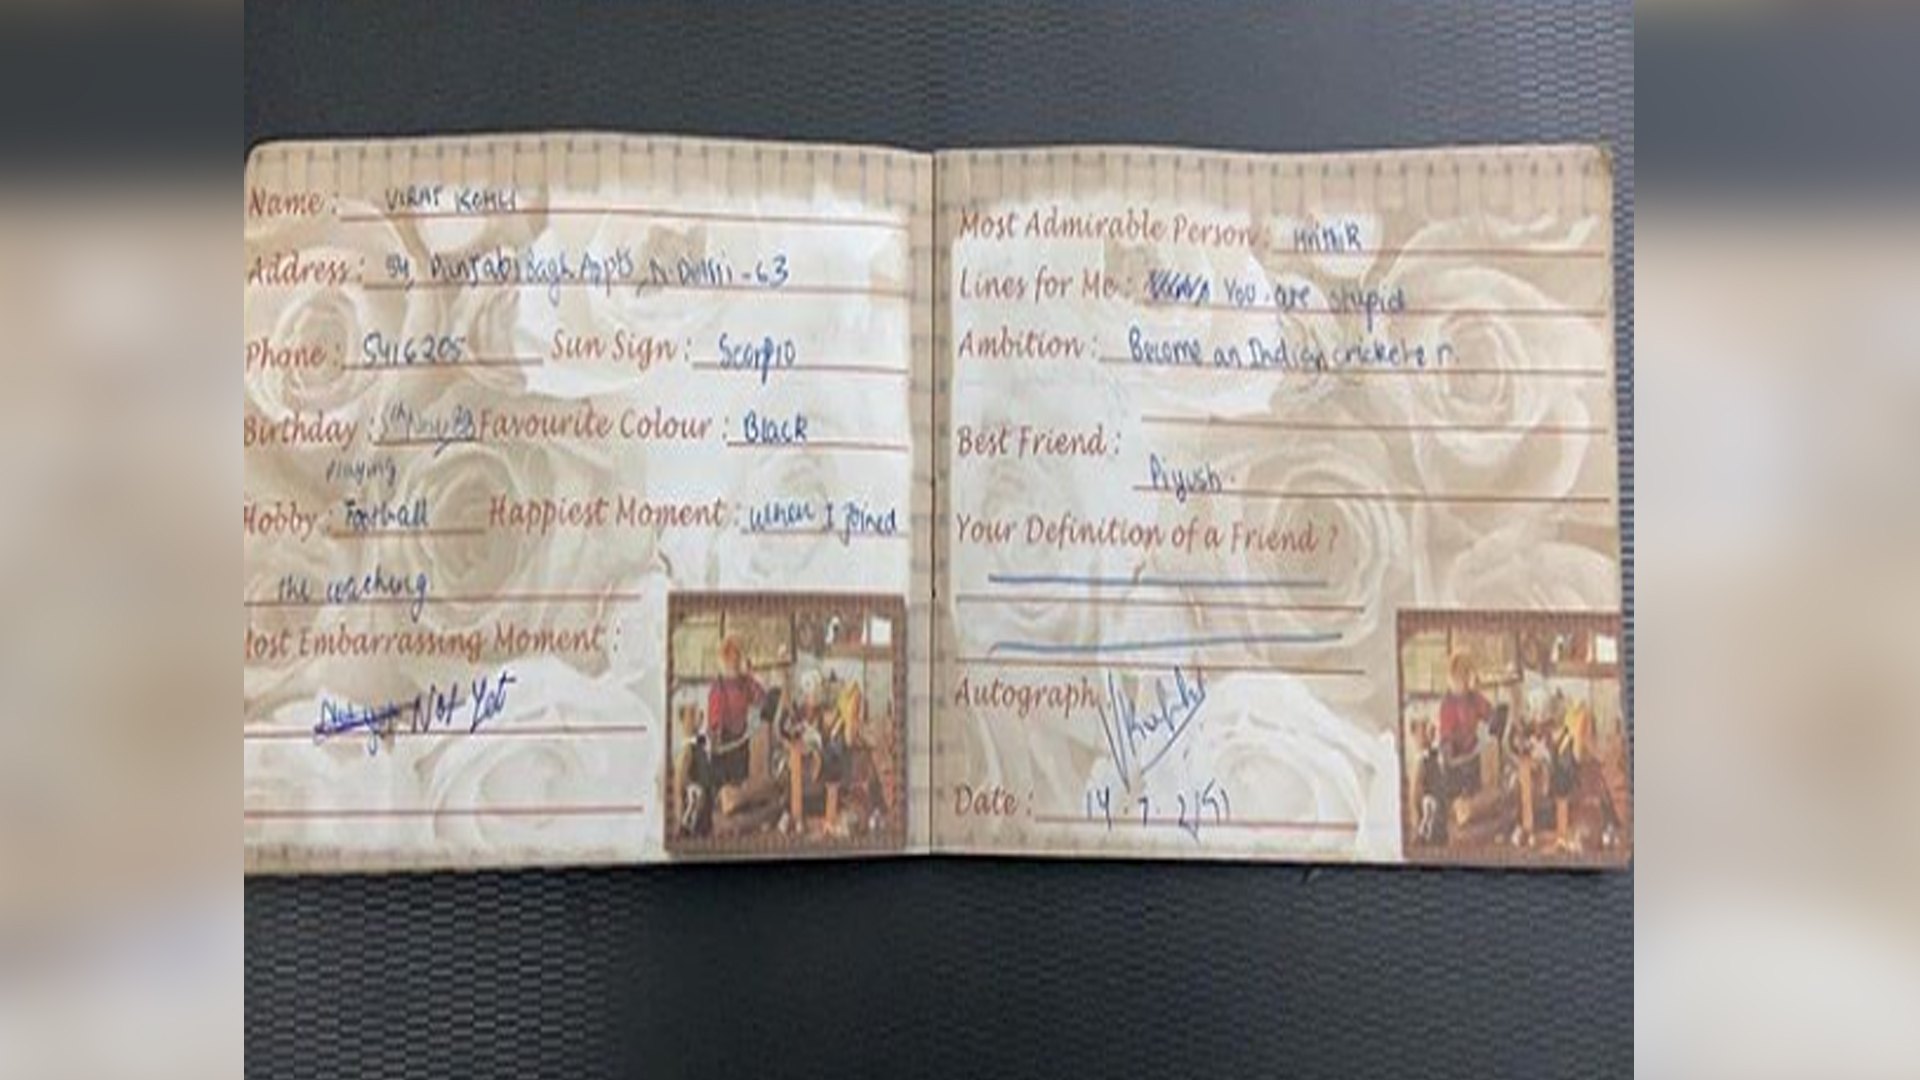 Name : VIRAT KOHLI
Address : 54, Punjabi Bagh Appts, N Delhi - 63
Phone : 5416205 Sun Sign : Scorpio
Birthday : 5th Favourite Colour : Black
playing
Hobby : Football Happiest Moment : when I joined
the coaching
Most Embarrassing Moment :
Not Yet
Most Admirable Person : Hrithik
Lines for Me : You are stupid
Ambition : Become an Indian cricketer.
Best Friend :
Piyush.
Your Definition of a Friend ?
Autograph
Date : 14.7.